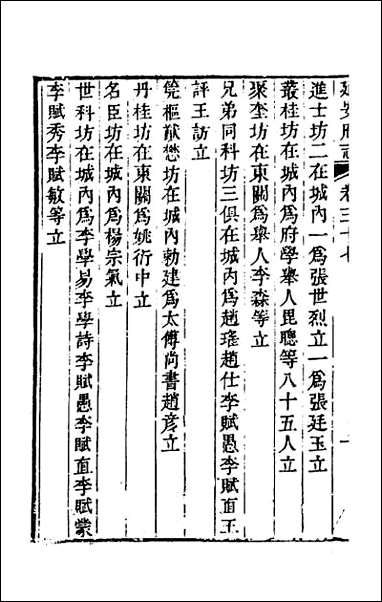 延安府志 卷三十七 一
進士坊二在城內一為張世烈立一為張廷玉立
叢桂坊在城內為府學舉人毘聰等八十五人立
聚奎坊在東關為舉人李森等立
兄弟同科坊三俱在城內為趙瑤趙仕李賦愚李賦直王
評王訪立
筦樞猷懋坊在城內勅建為太傅尚書趙彥立
丹桂坊在東關為姚衍中立
名臣坊在城內為楊宗氣立
世科坊在城內為李學易李學詩李賦愚李賦直李賦蒙
李賦秀李賦敏等立